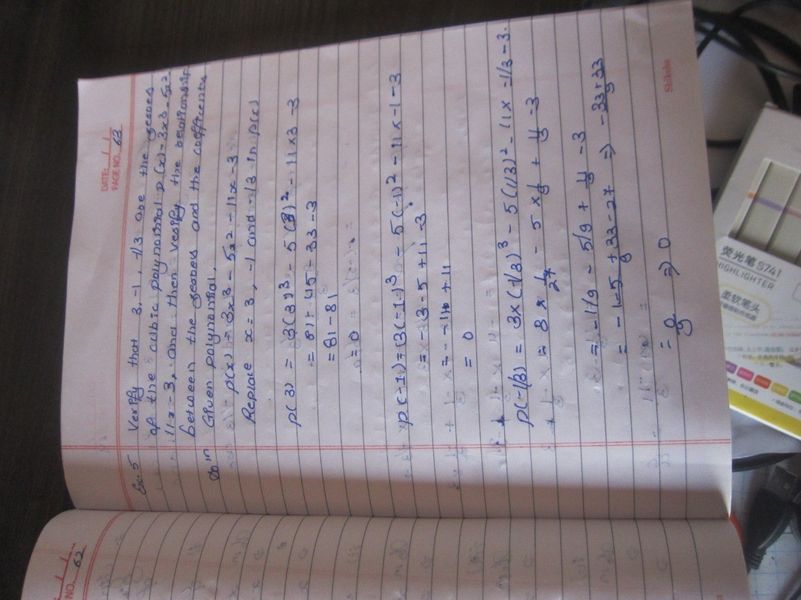 DATE: / /
PAGE NO. 63
Ex-5 Verify that 3, -1, -1/3 are the zeroes
of the cubic polynomial p(x) = 3x3 - 5x2
11x - 3, and then verify the
between the zeroes and the coefficients
Soln Given polynomial.
p(x) = 3x3 - 5x2 - 11x - 3
Replace x = 3, -1 and -1/3 in p(x)
p(3) = 3(3)3 - 5(3)2 - 11x3 - 3
= 81 - 45 - 33 - 3
= 81 - 81
= 0
p(-1) = 3(-1)3 - 5(-1)2 - 11x-1 - 3
= -3 - 5 + 11 - 3
= - 11 + 11
= 0
p(-1/3) = 3x(-1/3)3 - 5(1/3)2 - 11x -1/3 - 3.
= 3 x 1/27 - 5 x 1/9 + 11/3 - 3
= -1/9 - 5/9 + 11/3 - 3
= -1-5+33-27/9 => -33+33/9
= 0/9 => 0
Shiksha
NO. 62
荧光笔 5741
HIGHLIGHTER
柔软笔头